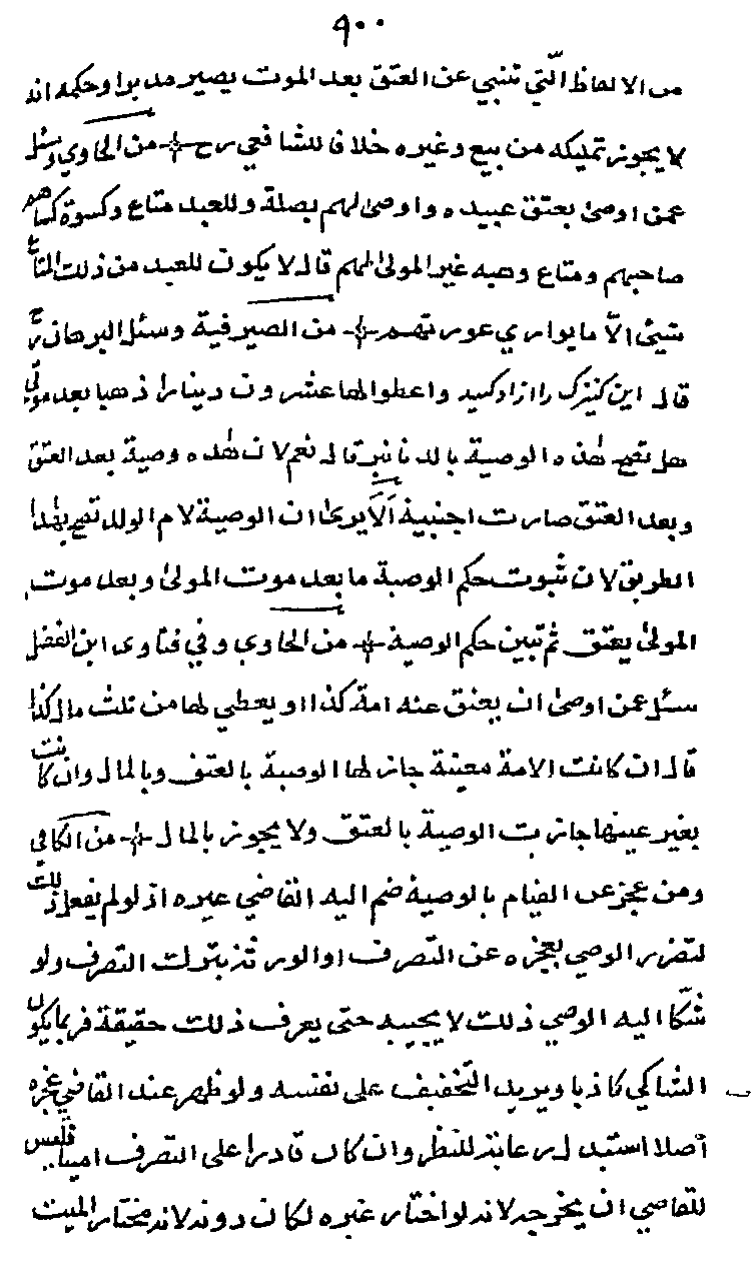 ٩٠٠
من الالفاظ الّتي تنبي عن العتق بعد الموت يصير مدبرا وحكمه انه
لا يجوز تمليكه من بيع وغيره خلافا للشافعي رح من الحاوي وسئل
عمن اوصى بعتق عبيده واوصى لهم بصلة وللعبد متاع وكسوة كساهم
صاحبهم ومتاع وهبه غير المولى لهم قال لا يكون للعبد من ذلك المتاع
شيئ الّا ما يواري عورتهم من الصيرفية وسئل البرهان رح
قال اين كنيزك را ازاد كنيد واعطوا لها عشرون دينارا ذهبا بعد موتي
هل تصح هذه الوصية بالدنانير قال نعم لان هذه وصية بعد العتق
وبعد العتق صارت اجنبية ألا يرى ان الوصية لام الولد تصح بهذا
الطريق لان ثبوت حكم الوصية ما بعد موت المولى وبعد موت
المولى يعتق ثم تبين حكم الوصية من الحاوي وفي فتاوى ابن الفضل
سئل عمن اوصى ان يعتق عنه امة كذا او يعطي لها من ثلث مال كذا
قال ان كانت الامة معينة جاز لها الوصية بالعتق وبالمال وان كانت
بغير عينها جازت الوصية بالعتق ولا يجوز بالمال من الكافي
ومن عجز عن القيام بالوصية ضم اليه القاضي غيره اذ لو لم يفعل ذلك
لتضرر الوصي بعجزه عن التصرف او الورثة بترك التصرف ولو
شكا اليه الوصي ذلك لا يجيبه حتى يعرف ذلك حقيقة فربما يكون
الشاكي كاذبا ويريد التخفيف على نفسه ولو ظهر عند القاضي عجزه
أصلا استبدل رعاية للنظر وان كان قادرا على التصرف امينا فليس
للقاضي ان يخرجه لانه لو اختار غيره لكان دونه لانه مختار الميت